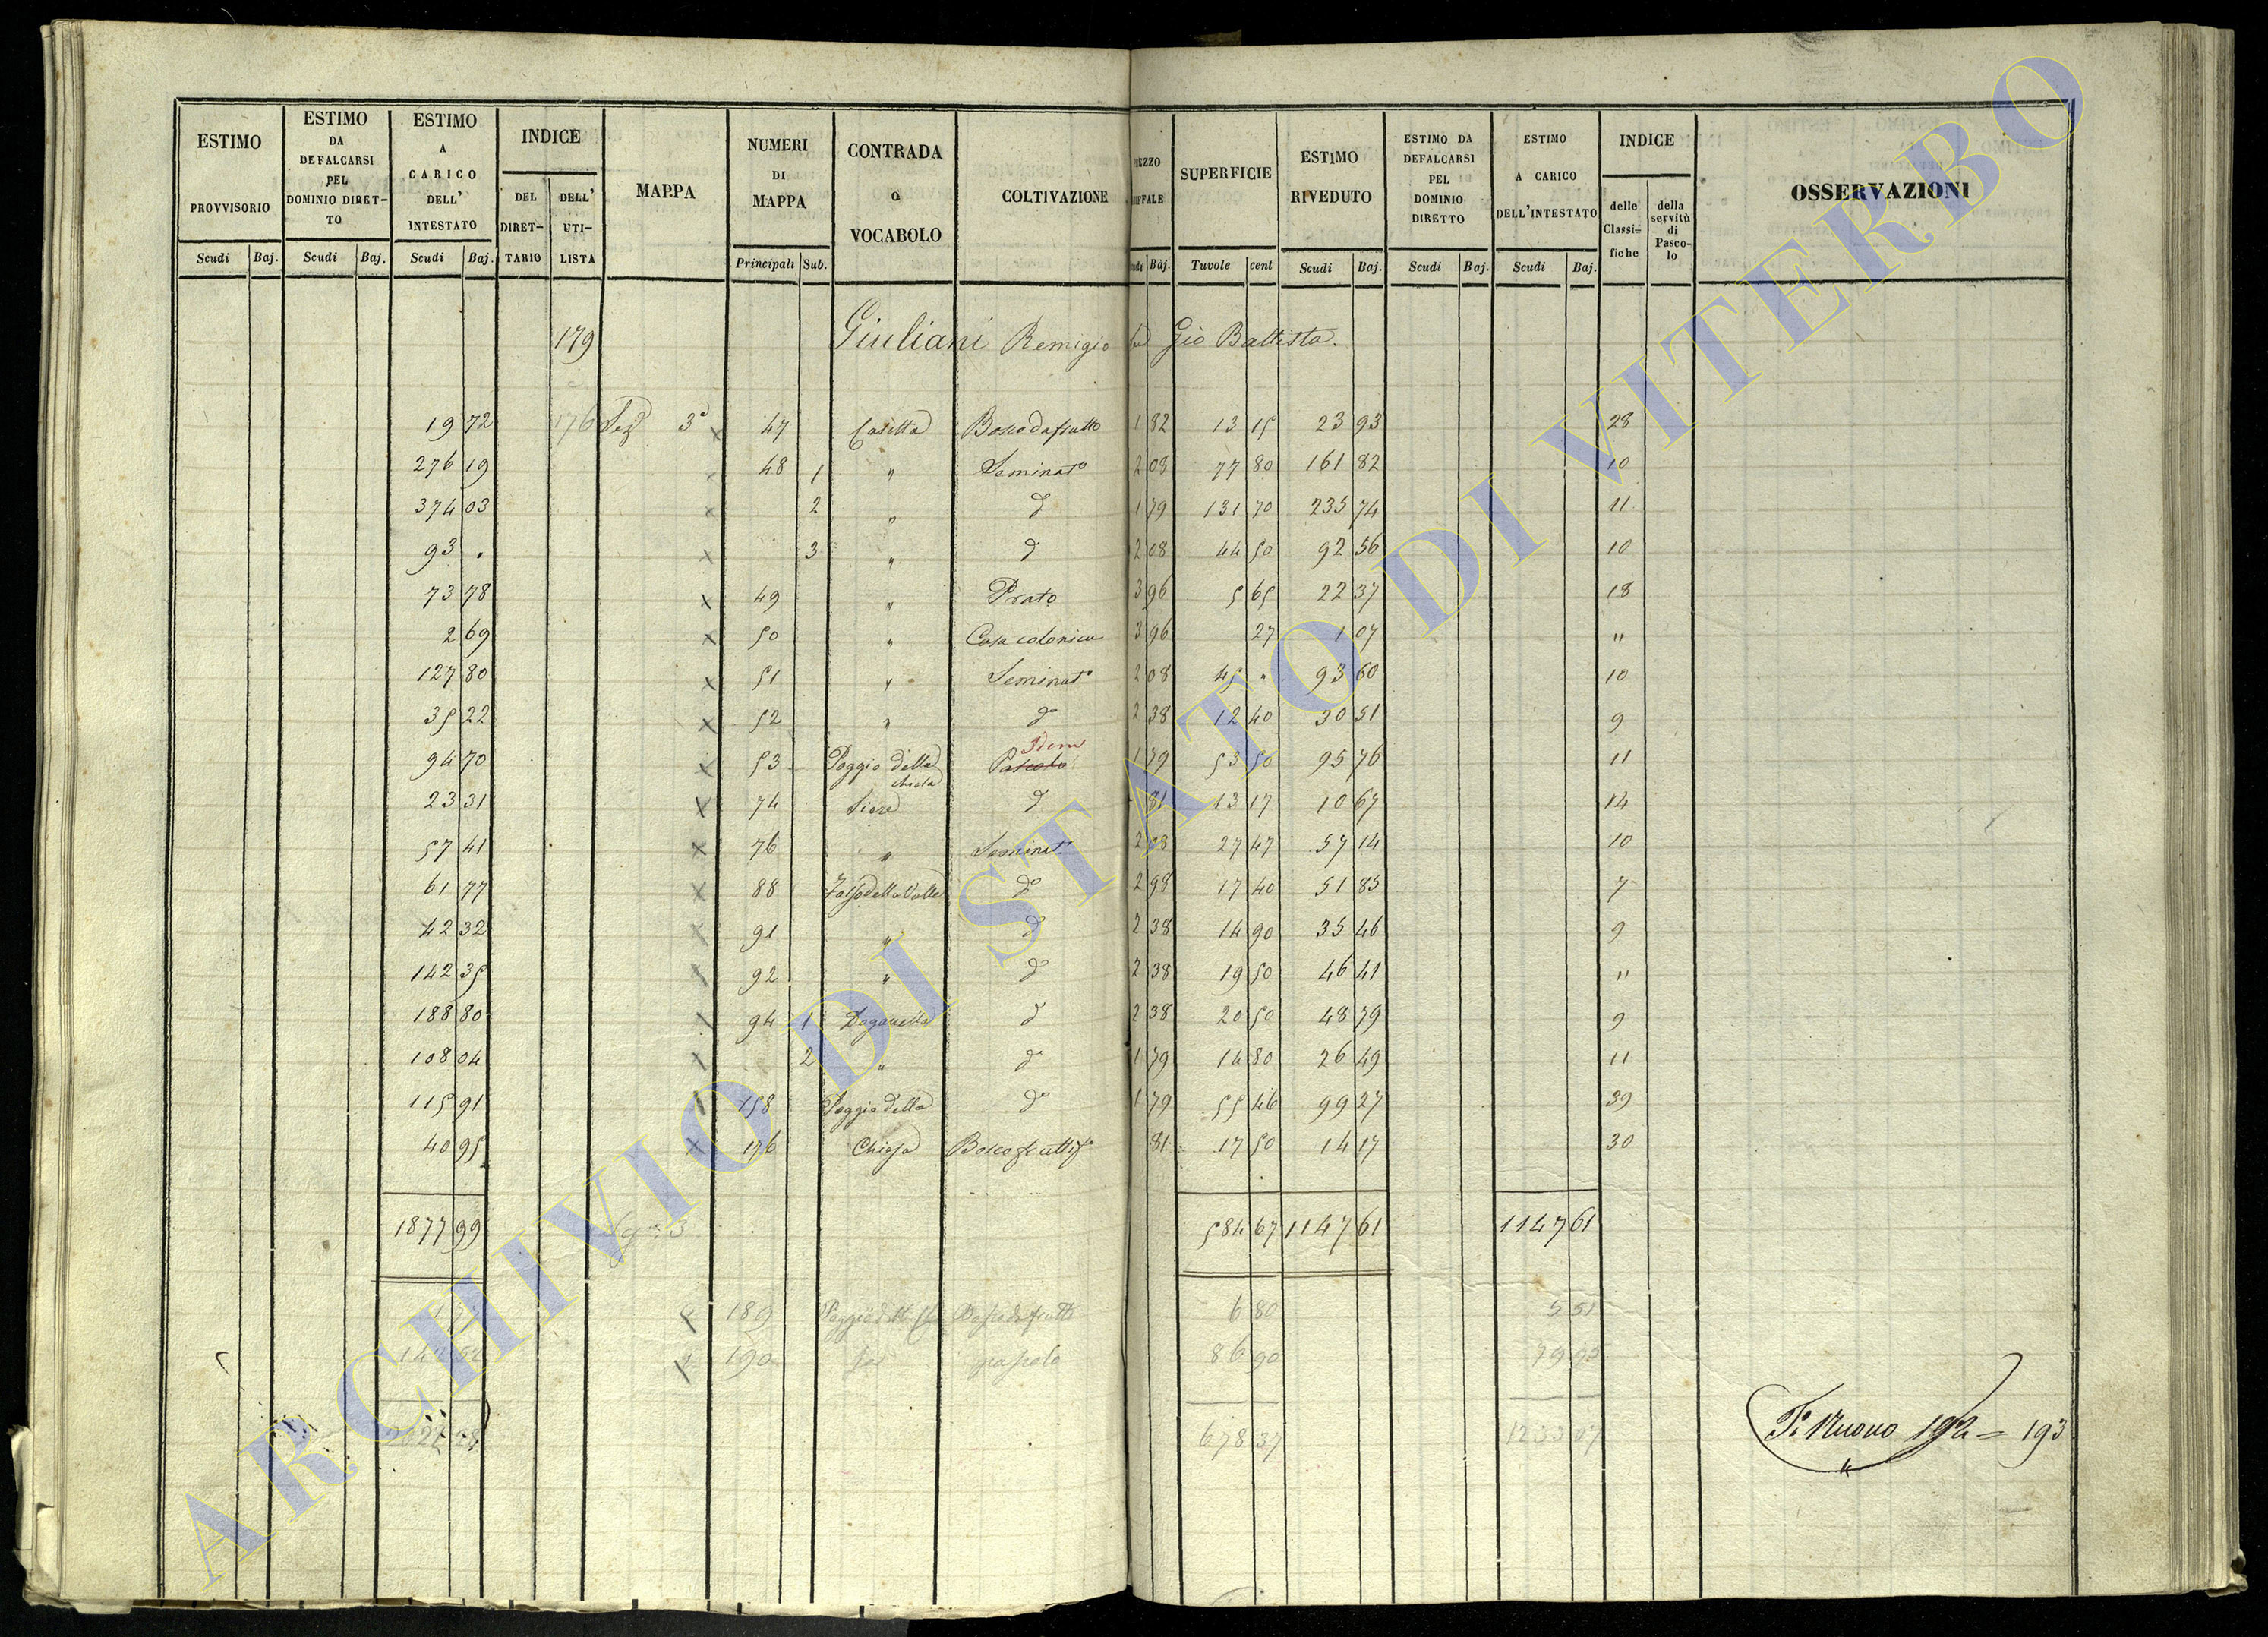 ESTIMO PROVVISORIO Scudi Baj.
ESTIMO DA DEFALCARSI PEL DOMINIO DIRET- TO Scudi Baj.
ESTIMO A CARICO DELL' INTESTATO Scudi Baj.
INDICE DEL DIRET- TARIO DELL' UTI- LISTA
MAPPA
NUMERI DI MAPPA Principali Sub.
CONTRADA O VOCABOLO
COLTIVAZIONE
Baj.
SUPERFICIE Tuvole cent
ESTIMO RIVEDUTO Scudi Baj.
ESTIMO DA DEFALCARSI PEL DOMINIO DIRETTO Scudi Baj.
ESTIMO A CARICO DELL'INTESTATO Scudi Baj.
INDICE delle Classi= fiche della servitù di Pasco- lo
OSSERVAZIONI
179 Giuliani Remigio Gio Battista.
19 72 176 3a 47 Casetta Bosco da frutto 1 82 13 15 23 93 28
276 19 48 1 " Seminato 2 08 77 80 161 82 10
374 03 2 " do 1 79 131 70 235 74 11
93 . 3 " do 2 08 44 50 92 56 10
73 78 49 " Prato 3 96 5 65 22 37 18
2 69 50 " Casa colonica 3 96 27 1 07 "
127 80 51 " Seminato 2 08 45 " 93 60 10
35 22 52 " do 2 38 12 40 30 51 9
Idem
94 70 53 Poggio della Pascolo 1 79 53 50 95 76 11
23 31 74 do 81 13 17 10 67 14
57 41 76 " Seminat. 2 08 27 47 57 14 10
61 77 88 Fosso della Valle do 2 98 17 40 51 85 7
42 32 91 " do 2 38 14 90 35 46 9
142 35 92 " do 2 38 19 50 46 41 "
188 80 94 1 Doganella do 2 38 20 50 48 79 9
108 04 2 " do 1 79 14 80 26 49 11
115 91 158 Poggio della do 1 79 55 46 99 27 39
40 95 176 Chiesa Bosco 81 17 50 14 17 30
1877 99 584 67 1147 61 1147 61
189 6 80 5 51
190 pascolo 86 90
678 37 1233 07
Nuovo 192 = 193
ARCHIVIO DI STATO DI VITERBO